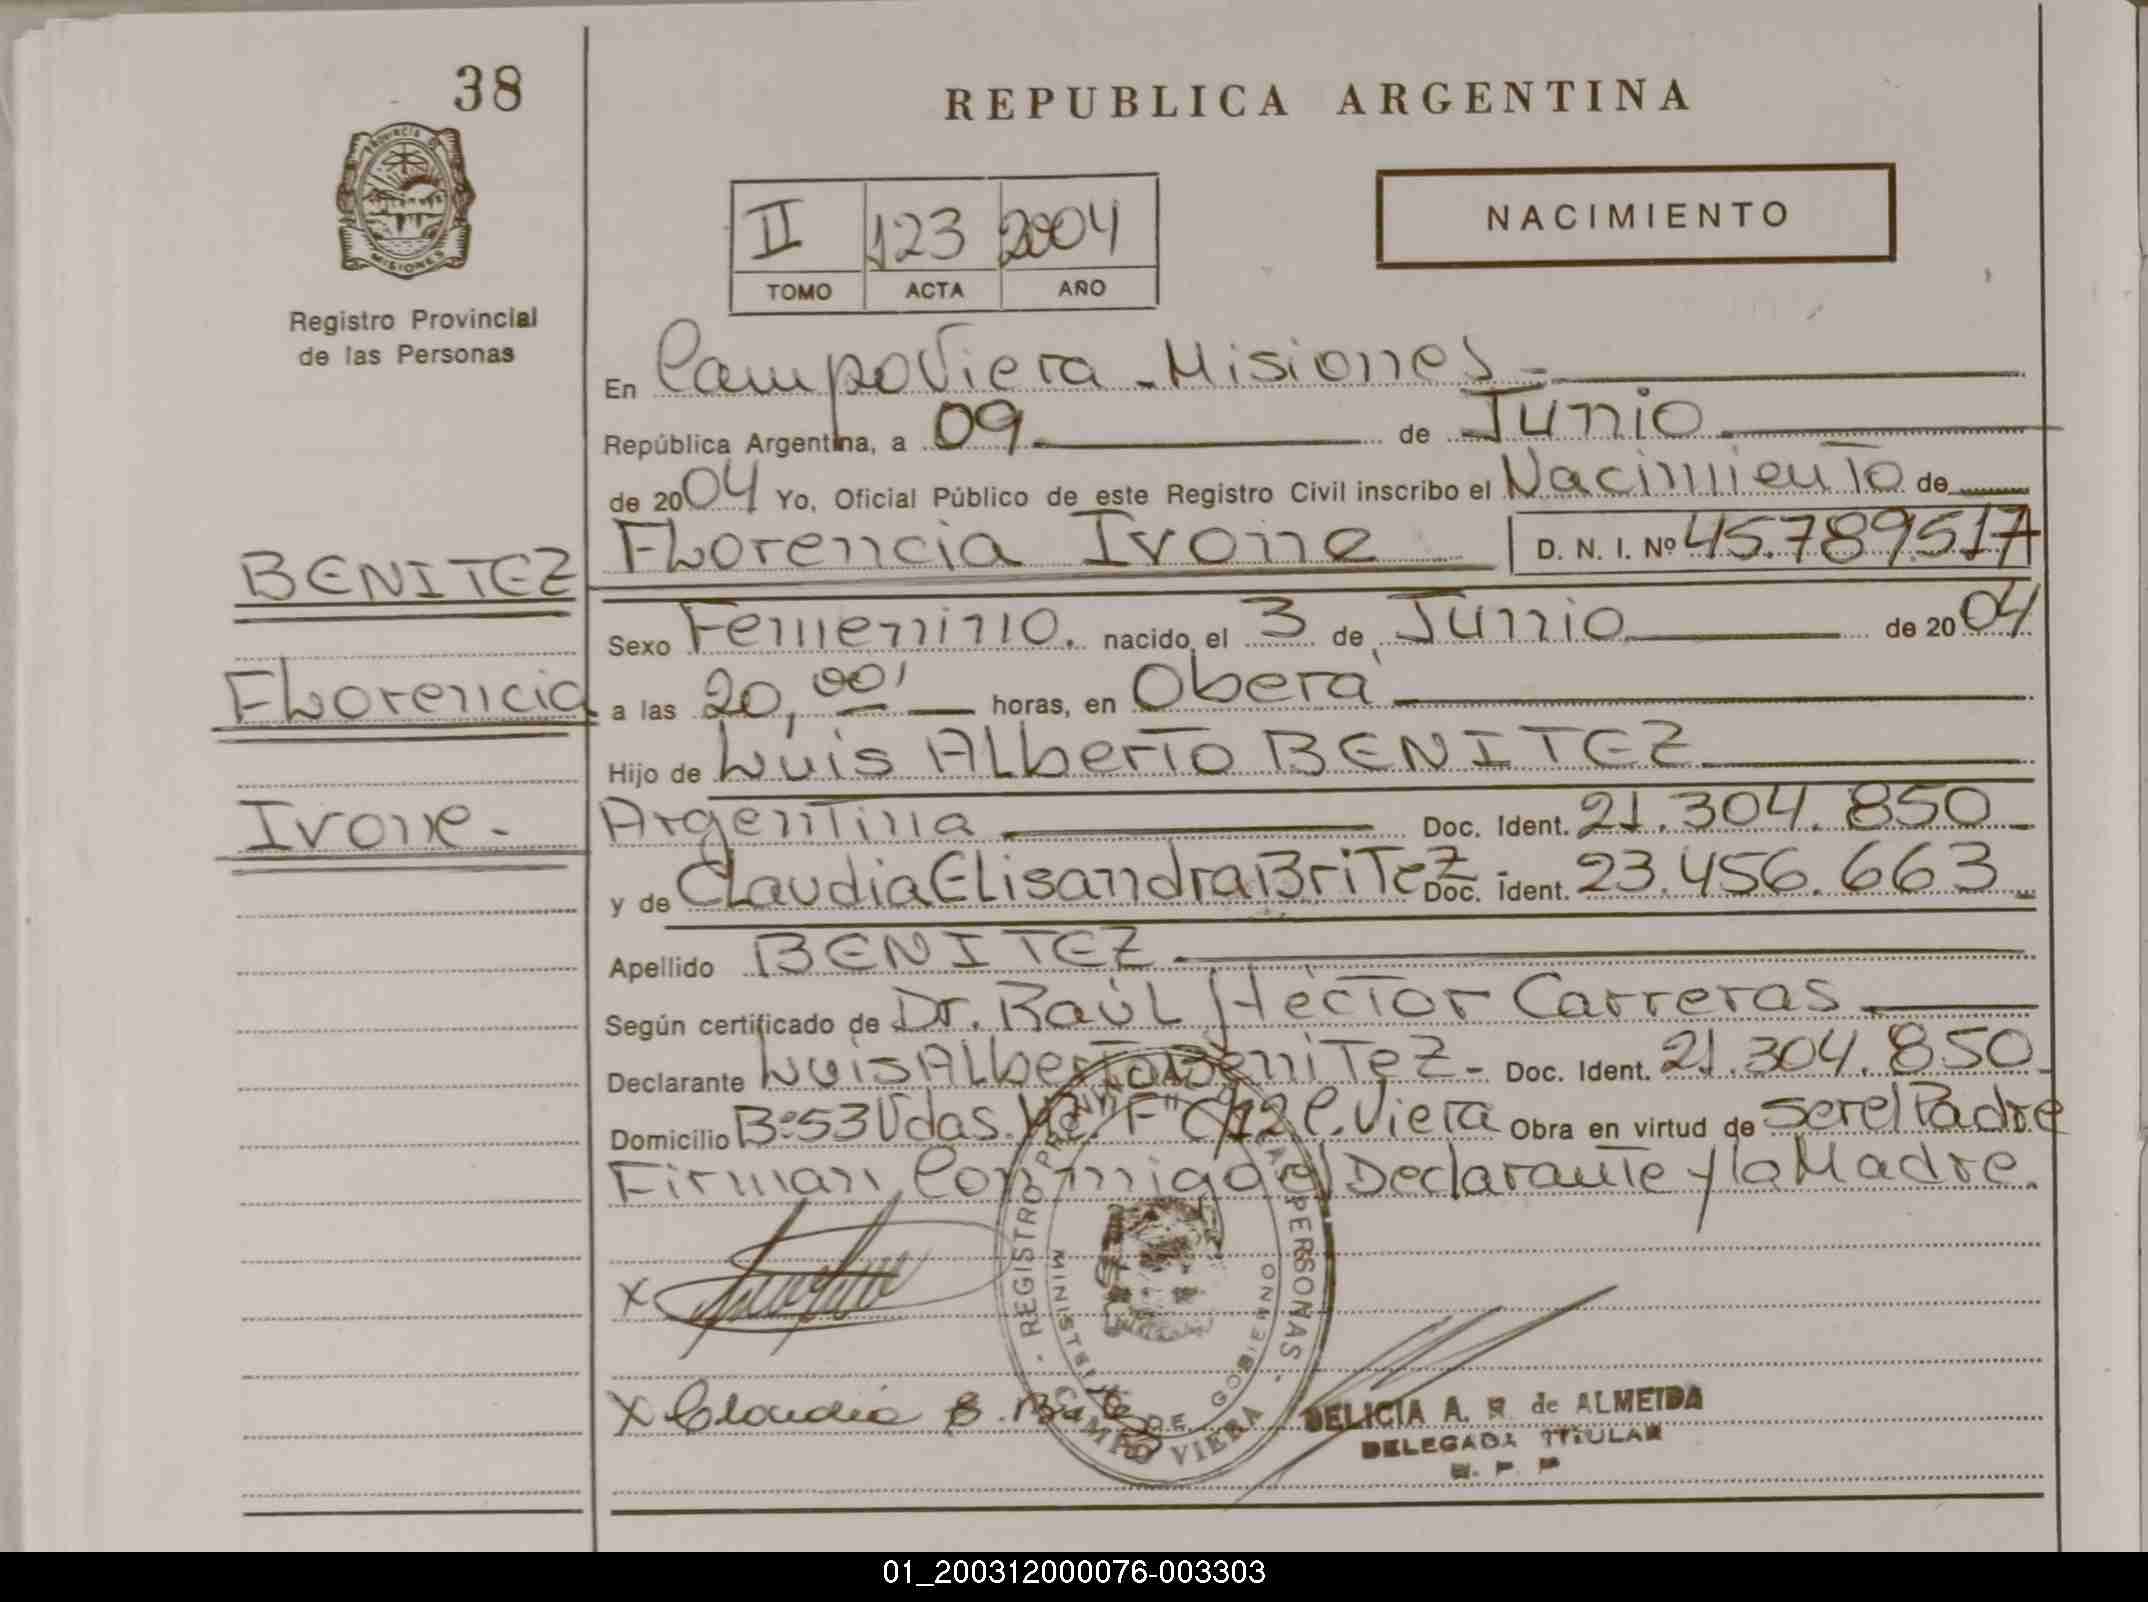 38
REPUBLICA ARGENTINA
PROVINCIA DE
MISIONES
Registro Provincial
de las Personas
II 123 2004
TOMO ACTA AÑO
NACIMIENTO
En Campo Viera - Misiones -
República Argentina, a 09 de Junio
de 2004 Yo, Oficial Público de este Registro Civil inscribo el Nacimiento de
Florencia Ivone D. N. I. Nº 45.789.517
BENITEZ
Sexo Femenino. nacido el 3 de Junio de 2004
Florencia
a las 20,00' horas, en Oberá
Hijo de Luis Alberto BENITEZ
Ivone.-
Argentina Doc. Ident. 21.304.850
y de Claudia Elisandra BriTez - Doc. Ident. 23.456.663
Apellido BENITEZ
Según certificado de Dr. Raúl Héctor Carreras
Declarante Luis Alberto Benitez - Doc. Ident. 21.304.850
Domicilio Bº 53 Vdas. "F" C/12 C. Viera Obra en virtud de ser el Padre
Firman Conmigo el Declarante y la Madre.
X
X Claudia E.
REGISTRO PERSONAS
MINISTERIO DE GOBIERNO
CAMPO VIERA
DELICIA A. R. de ALMEIDA
DELEGADA TITULAR
R. P. P.
01_200312000076-003303